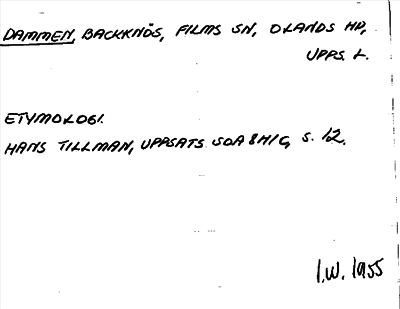 DAMMEN, BACKKNÖS, FILMS SN, OLANDS HD,
UPPS. L.
ETYMOLOGI.
HANS TILLMAN, UPPSATS SOA8H1G, S. 12.
I.W. 1955